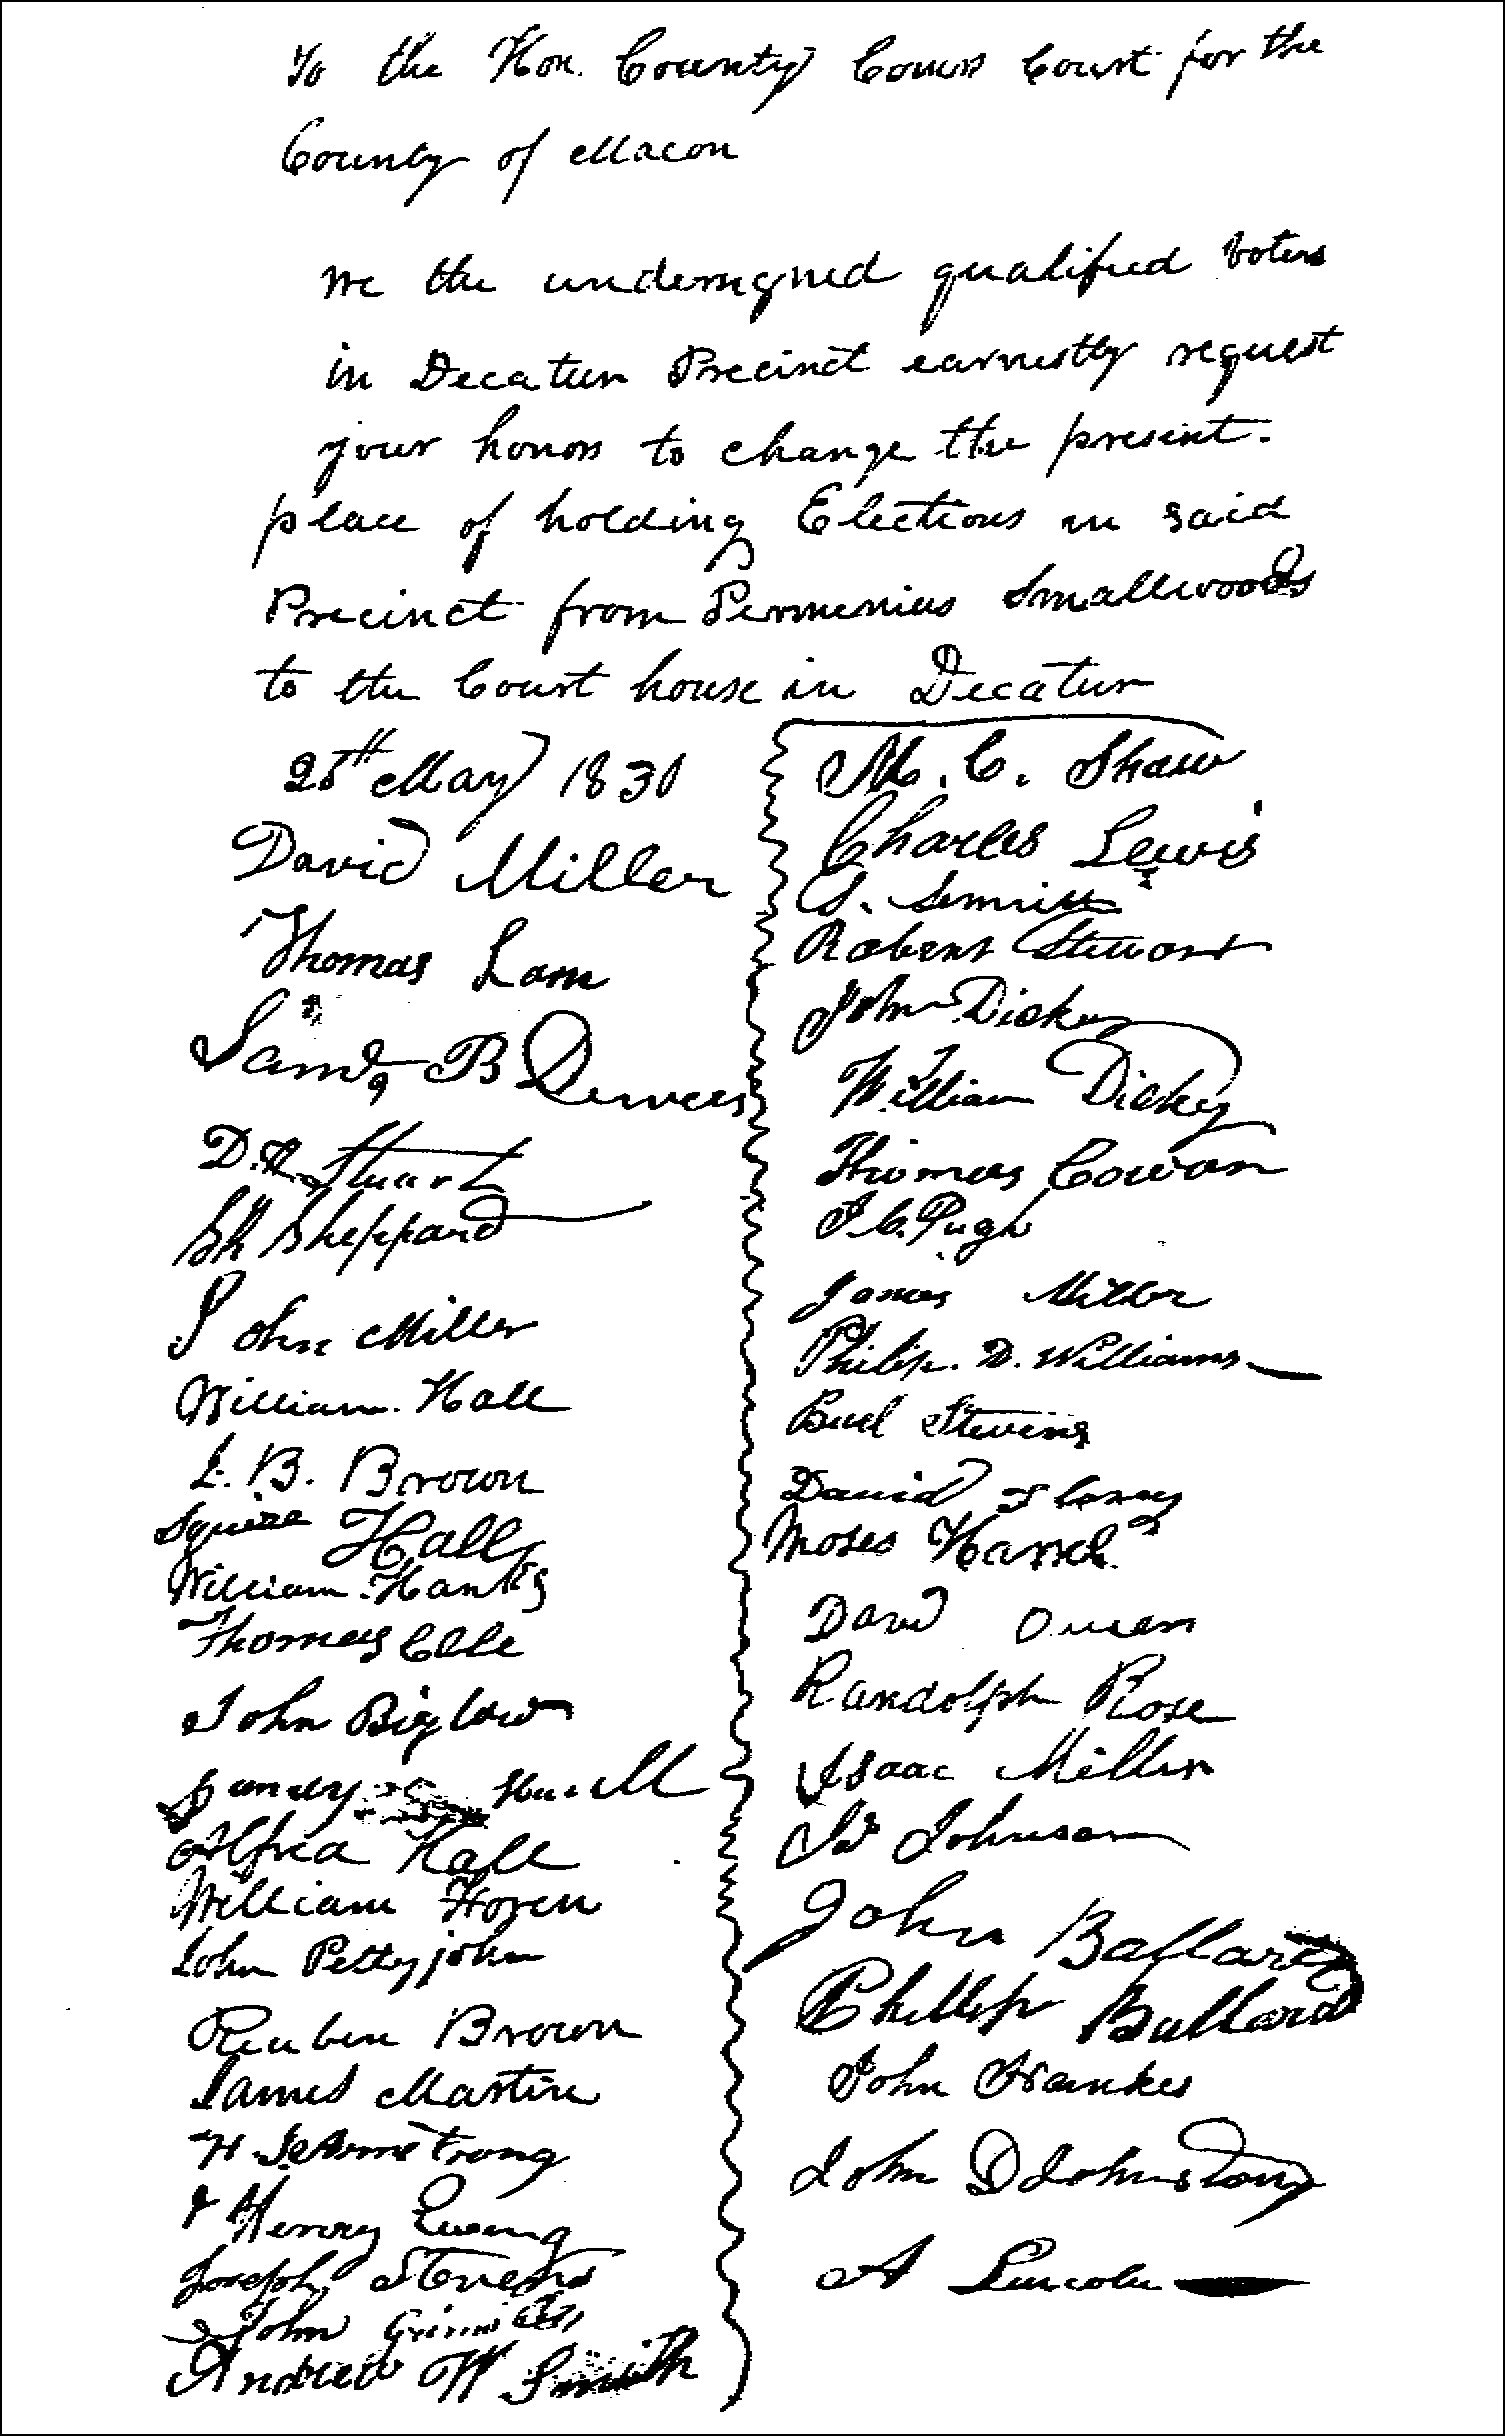 To the Hon. County Comrs Court for the
County of Macon
We the undersigned qualified voters
in Decatur Precinct earnestly request
your honors to change the present
place of holding Elections in said
Precinct from Permenias Smallwoods
to the Court house in Decatur
25th May 1830
David Miller
Thomas Lam
B Dewees
D. Stuart
Sheppard
John Miller
William Hall
L. B. Brown
Squire Hall
William Hanks
Thomas
John Biglow
Hall
William Hoven
John Pettyjohn
Reuben Brown
James Martin
H. Armstrong
Henry Ewing
Joseph Stevens
John
Andrew W Smith
M. C. Shaw
Charles Lewis
G.
Robert Stewart
John Dickey
William Dickey
Thomas Cowan
I. C. Pugh
James Miller
Philip D. Williams
Buel Stevens
David Florey
Moses
David Owen
Randolph Rose
Isaac Miller
Johnson
John Ballard
Phillip Ballard
John
John D Johnston
A Lincoln